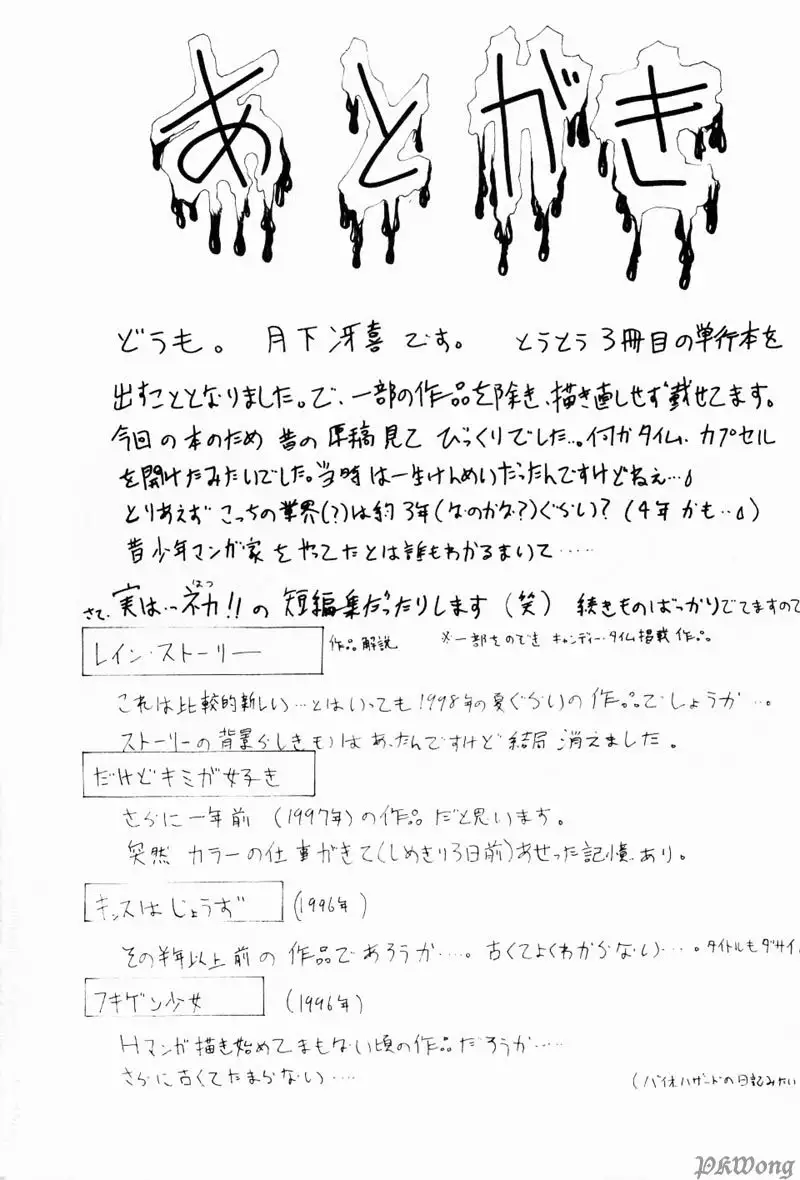 あとがき
どうも。 月下冴喜です。 とうとう3冊目の単行本を
出すこととなりました。で、一部の作品を除き、描き直しせず載せてます。
今回の本のため昔の原稿見てびっくりでした…。何かタイム・カプセル
を開けたみたいでした。当時は一生けんめいだったんですけどねえ…
とりあえずこっちの業界(?)は約3年(なのかな?)ぐらい? (4年かも…)
昔少年マンガ家をやってたとは誰もわかるまいて……
さて、実は…初!!の短編集だったりします(笑) 続きものばっかりでてますので
はつ
レイン・ストーリー 作品解説 ※一部をのぞき キャンディータイム掲載作品。
これは比較的新しい…とはいっても1998年の夏ぐらいの作品でしょうか…。
ストーリーの背景らしきものはあったんですけど結局消えました。
だけどキミが好き
さらに一年前 (1997年)の作品だと思います。
突然カラーの仕事がきて(しめきり3日前)あせった記憶あり。
キッスはじょうず (1996年)
その半年以上前の作品であろうか…。古くてよくわからない…。タイトルもダサイ
フキゲン少女 (1996年)
Hマンガ描き始めてまもない頃の作品だろうか……
さらに古くてたまらない…
(バイオハザードの日記みたい
PKWong